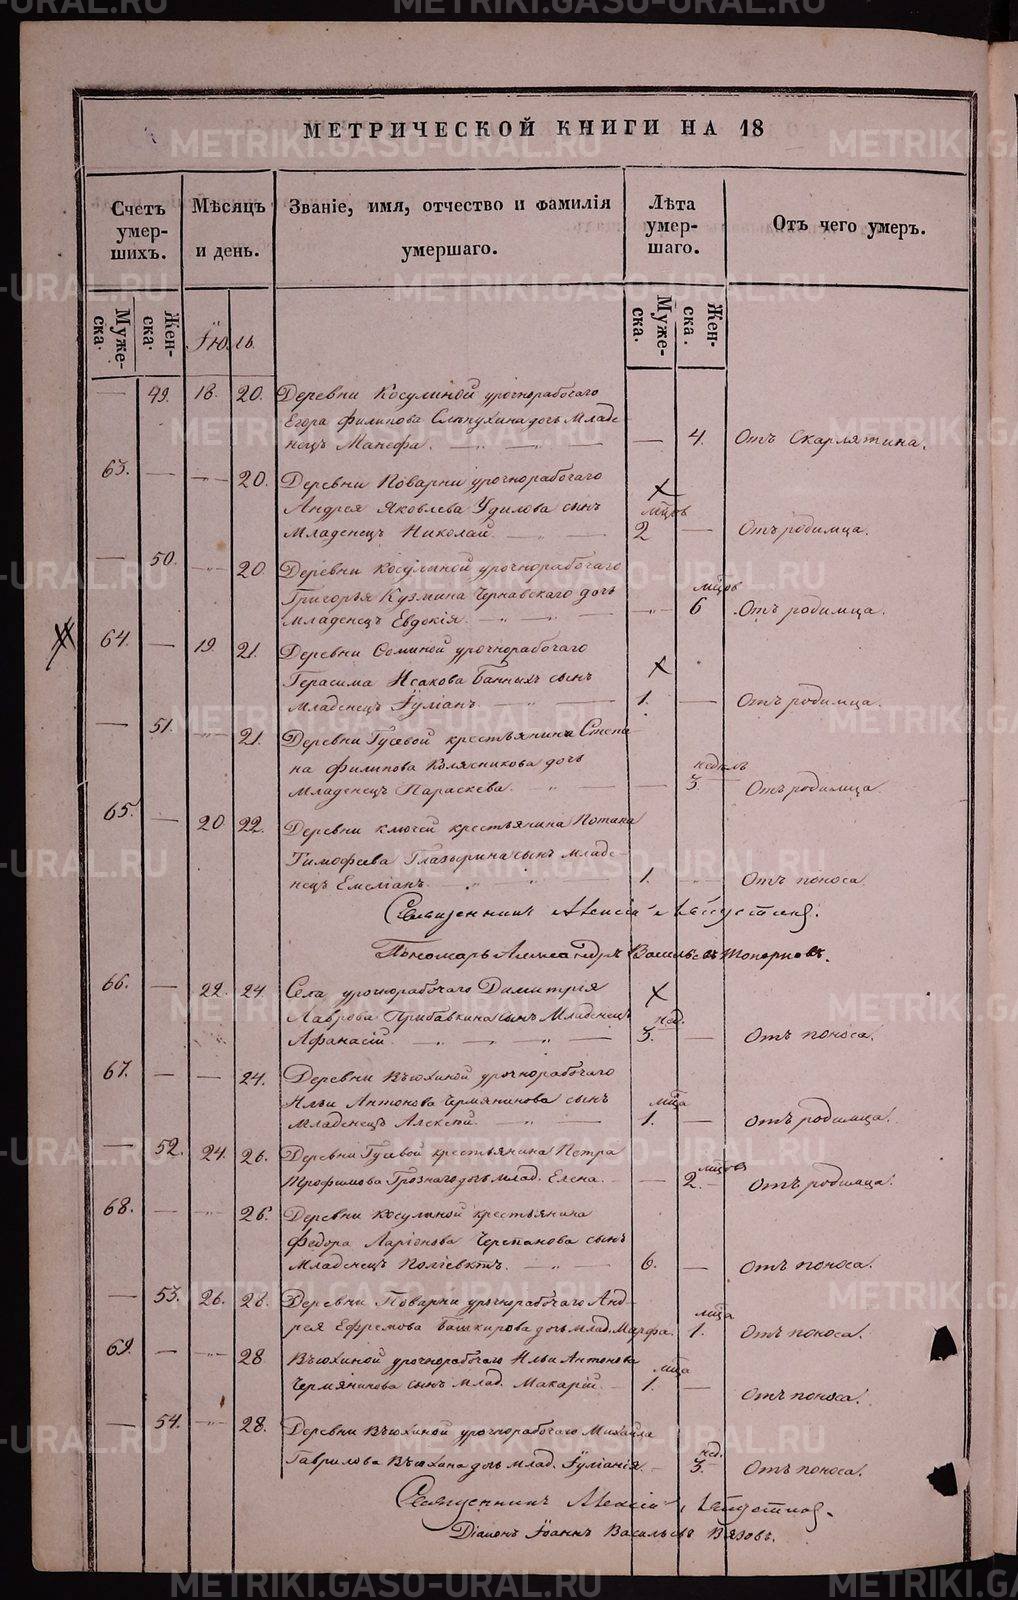 МЕТРИЧЕСКОЙ КНИГИ НА 18
Счетъ умер-шихъ. Мѣсяцъ и день. Званіе, имя, отчество и фамилія умершаго. Лѣта умер-шаго. Отъ чего умеръ.
Муже-ска. Жен-ска. Муже-ска. Жен-ска.
Іюль.
— 49. 18. 20. Деревни Косулиной урочнорабочаго
Егора Филипова дочь Младе-
нецъ Манефа. — 4. Отъ Скарлятина.
63. — — 20. Деревни Поварни урочнорабочаго
Андрея Яковлева Удилова сынъ мѣцовъ
Младенецъ Николай. 2 — Отъ родимца.
— 50. — 20 Деревни Косулиной урочнорабочаго
Григорья Кузмина Чернавскаго дочь мѣцовъ
Младенецъ Евдокія. — 6 Отъ родимца.
64. — 19. 21. Деревни урочнорабочаго
Герасима Исакова Банныхъ сынъ
Младенецъ Іуліанъ. 1. — Отъ родимца.
— 51. — 21. Деревни Гусевой крестьянина Степа
на Филипова Колясникова дочь недѣль
Младенецъ Параскева. — 3. Отъ родимца.
65. — 20. 22. Деревни Ключей крестьянина Потапа
Тимофеева Глазырина сынъ младе-
нецъ Емеліанъ. 1. — Отъ поноса
Священникъ Алексій
Пономарь Александръ Васильевъ Топорковъ.
66. — 22. 24. Села урочнорабочаго Димитрія
Лаврова Прибавкина сынъ Младенецъ нед.
Афанасій. 3. — Отъ поноса.
67. — — 24. Деревни Вьюхиной урочнорабочаго
Ильи Антонова Чермянинова сынъ мѣца
Младенецъ Алексѣй. 1. — Отъ родимца.
— 52. 24. 26. Деревни Гусевой крестьянина Петра мѣцовъ
Трофимова Грознаго дочь млад. Елена. — 2. Отъ родимца.
68. — — 26. Деревни Косулиной крестьянина
Федора Ларіонова Черепанова сынъ
Младенецъ Поліевктъ. 6. — Отъ поноса.
— 53. 26. 28. Деревни Поварни урочнорабочаго Анд-
рея Ефремова Башкирова дочь млад. Марфа. мѣца 1. Отъ поноса.
69. — — 28 Вьюхиной урочнорабочаго Ильи Антонова мѣца
Чермянинова сынъ млад. Макарій. 1. — Отъ поноса.
— 54. — 28. Деревни Вьюхиной урочнорабочаго Михайла
Гаврилова Вьюхина дочь млад. Іуліанія. нед. 3. Отъ поноса.
Священникъ Алексій
Діаконъ Іоаннъ Васильевъ Вязовъ.
METRIKI.GASO-URAL.RU